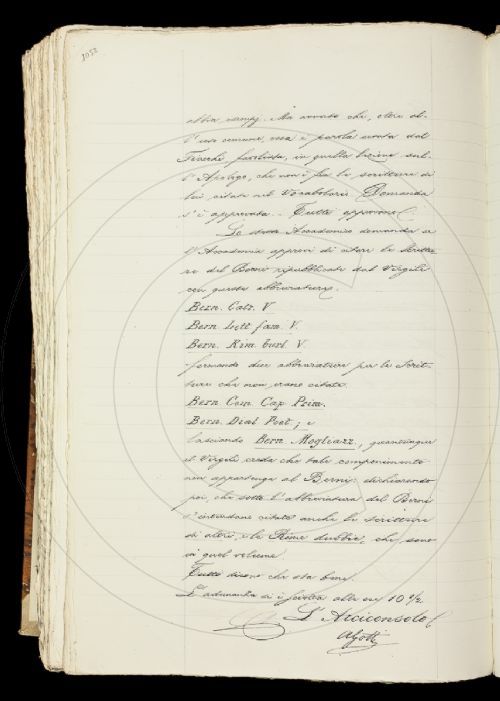 1052
abbia esempj. Ma avverte che, oltre al-
l'uso comune, essa è parola usata dal
favolista, in quella lezione sul-
l'Apologo, che non è fra le scritture di
lui citate nel Vocabolario. Domanda
s'è approvata. Tutti approvano.
Lo stesso Accademico domanda se
l'Accademia approvi di citare le Scrittu-
re del Berni ripubblicate dal Virgili
con queste abbreviature.
Bern. Catr. V
Bern. Lett. fam. V.
Bern. Rim. burl. V.
formando due abbreviature per le Scrit-
ture che non erano citate
Bern. Com. Cap. Prim.
Bern. Dial. Poet.; e
lasciando Bern. Mogliazz., quantunque
il Virgili creda che tale componimento
non appartenga al Berni: dichiarando
poi, che sotto l'abbreviatura del Berni
s'intendono citate anche le scritture
di altri, e le Rime dubbie, che sono
in quel volume.
Tutti dicono che sta bene.
L'adunanza si è sciolta alle ore 10 1/2
L'Arciconsolo